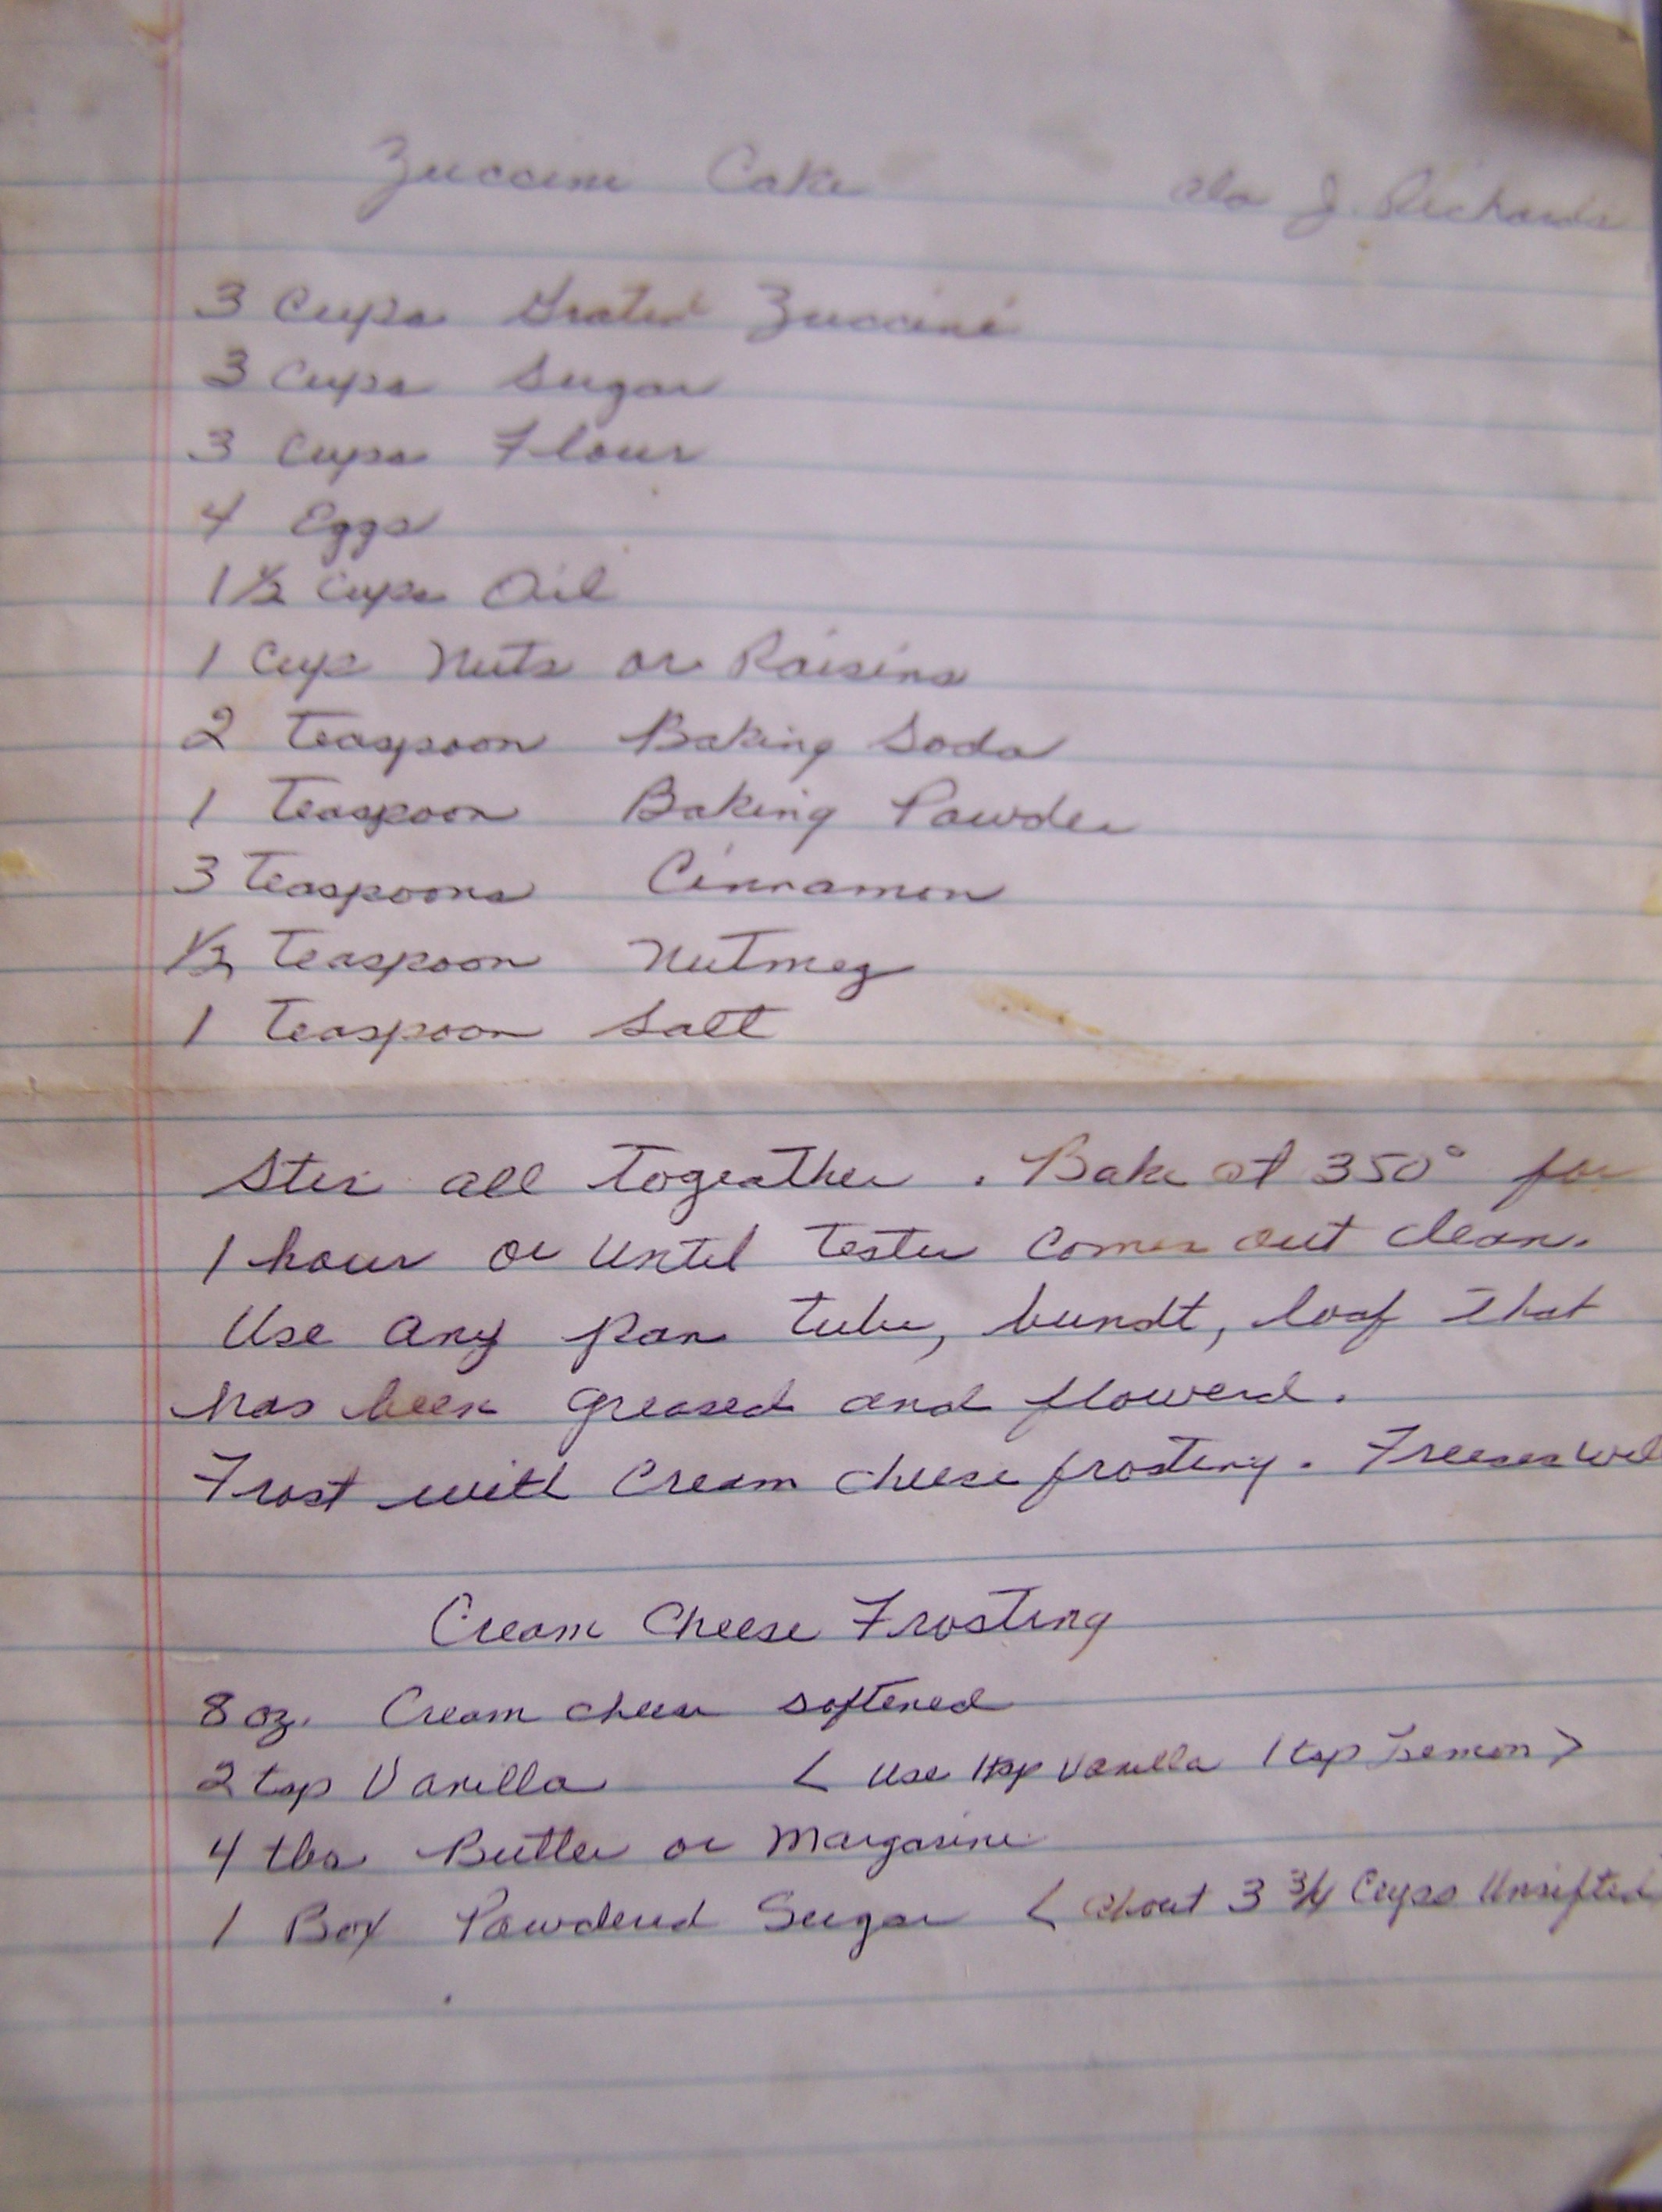 Zuccini Cake ala J. Richards
3 Cups Grated Zuccini
3 Cups Sugar
3 Cups Flour
4 Eggs
1 1/2 Cups Oil
1 Cup Nuts or Raisins
2 Teaspoon Baking Soda
1 Teaspoon Baking Powder
3 Teaspoons Cinnamon
1/2 Teaspoon Nutmeg
1 Teaspoon Salt
Stir all Togeather. Bake at 350° for
1 hour or until Tester Comes out clean.
Use any pan Tube, bundt, loaf that
has been greased and flowerd.
Frost with Cream cheese frosting. Freeses well
Cream Cheese Frosting
8 oz. Cream cheese softened
2 tsp Vanilla < use 1 tsp Vanilla 1 tsp Lemon >
4 tbs Butter or Margarine
1 Box Powdered Sugar < about 3 3/4 Cups Unsifted